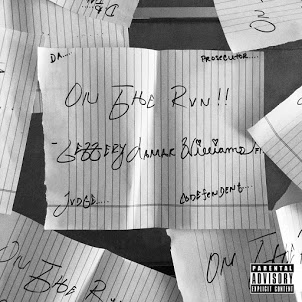 DA....
PROSECUTOR....
On The Run!!
Jeffery Lamar Williams
JUDGE....
CODEFENDENT....
On The Run
On The
PARENTAL
ADVISORY
EXPLICIT CONTENT